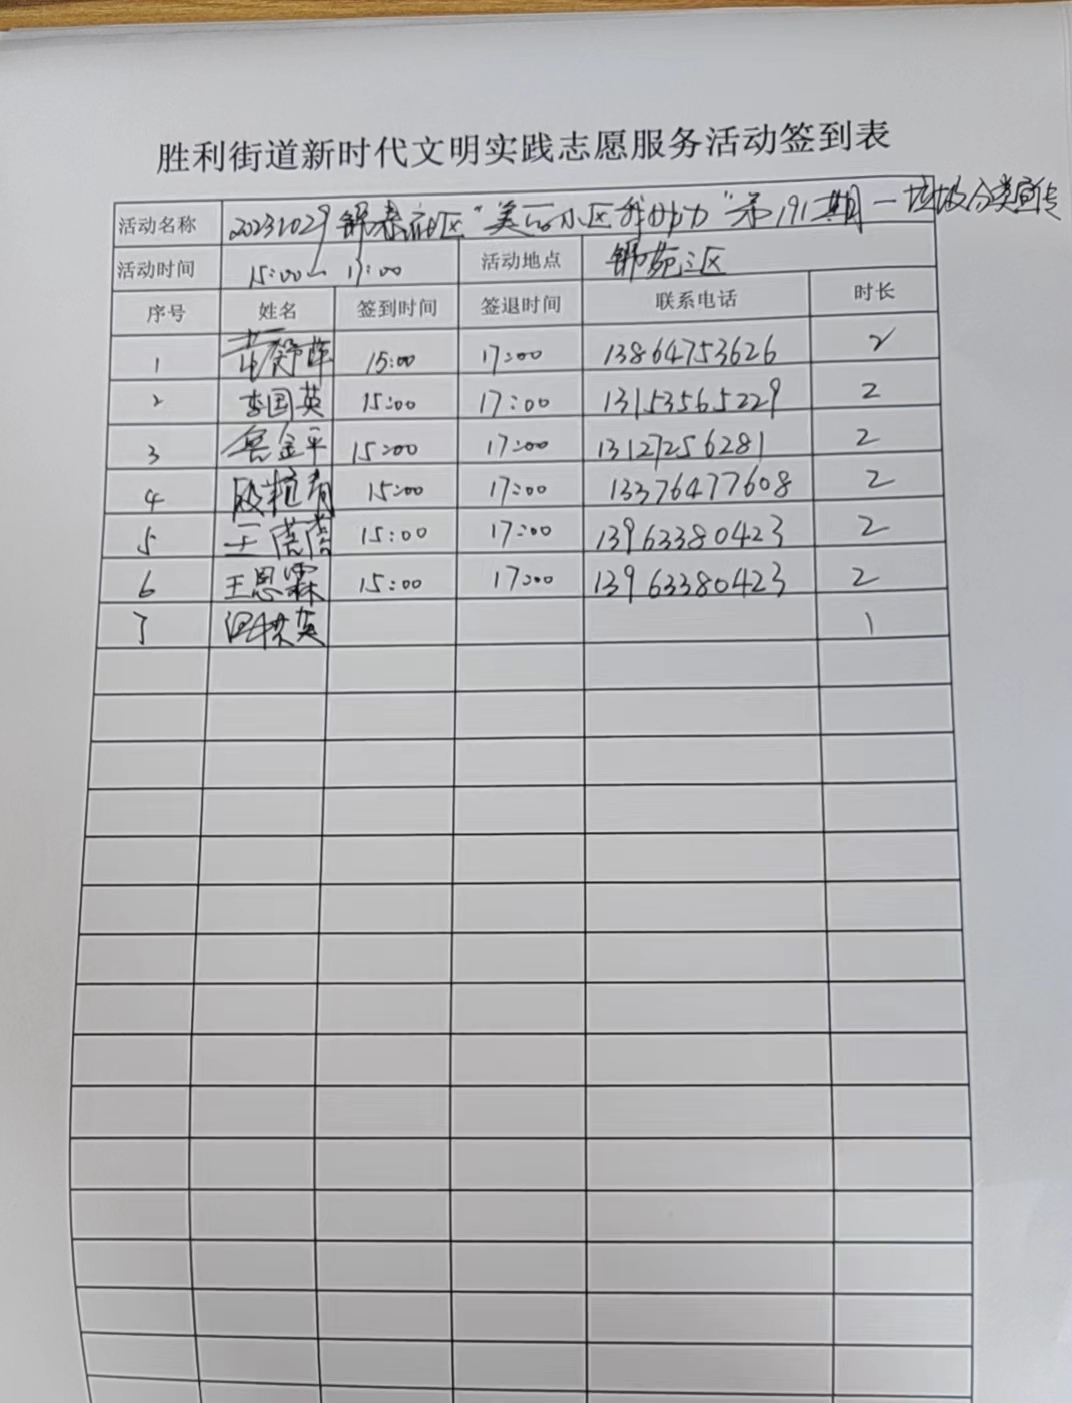 胜利街道新时代文明实践志愿服务活动签到表
活动名称 20231029 锦春社区"美丽小区我助力"第191期一垃圾分类宣传
活动时间 15:00- 17:00 活动地点 锦苑三区
序号 姓名 签到时间 签退时间 联系电话 时长
1 15:00 17:00 13864753626 2
2 李国英 15:00 17:00 13153565229 2
3 鲁金平 15:00 17:00 13127256281 2
4 15:00 17:00 13376477608 2
5 王虎虎 15:00 17:00 13963380423 2
6 王恩霖 15:00 17:00 13963380423 2
7 英 1